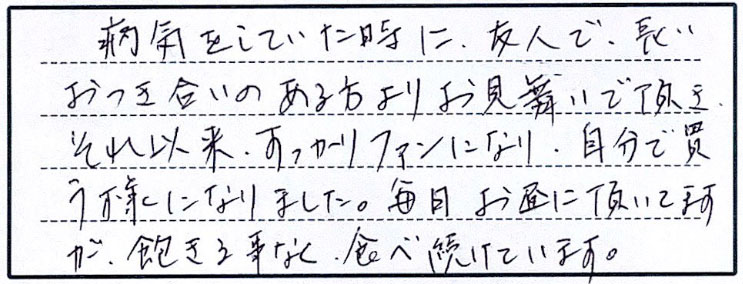 病気をしていた時に、友人で、長い
おつき合いのある方よりお見舞いで頂き、
それ以来、すっかりファンになり、自分で買
う様になりました。毎日お昼に頂いてます
が、飽きる事なく、食べ続けています。